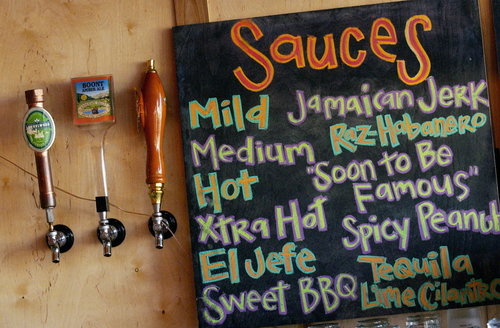 Sauces
Mild
Medium
Hot
Xtra Hot
El Jefe
Sweet BBQ
Jamaican Jerk
Raz-Habanero
"Soon to Be
Famous"
Spicy Peanut
Tequila
Lime Cilantro
BOONT
AMBER ALE